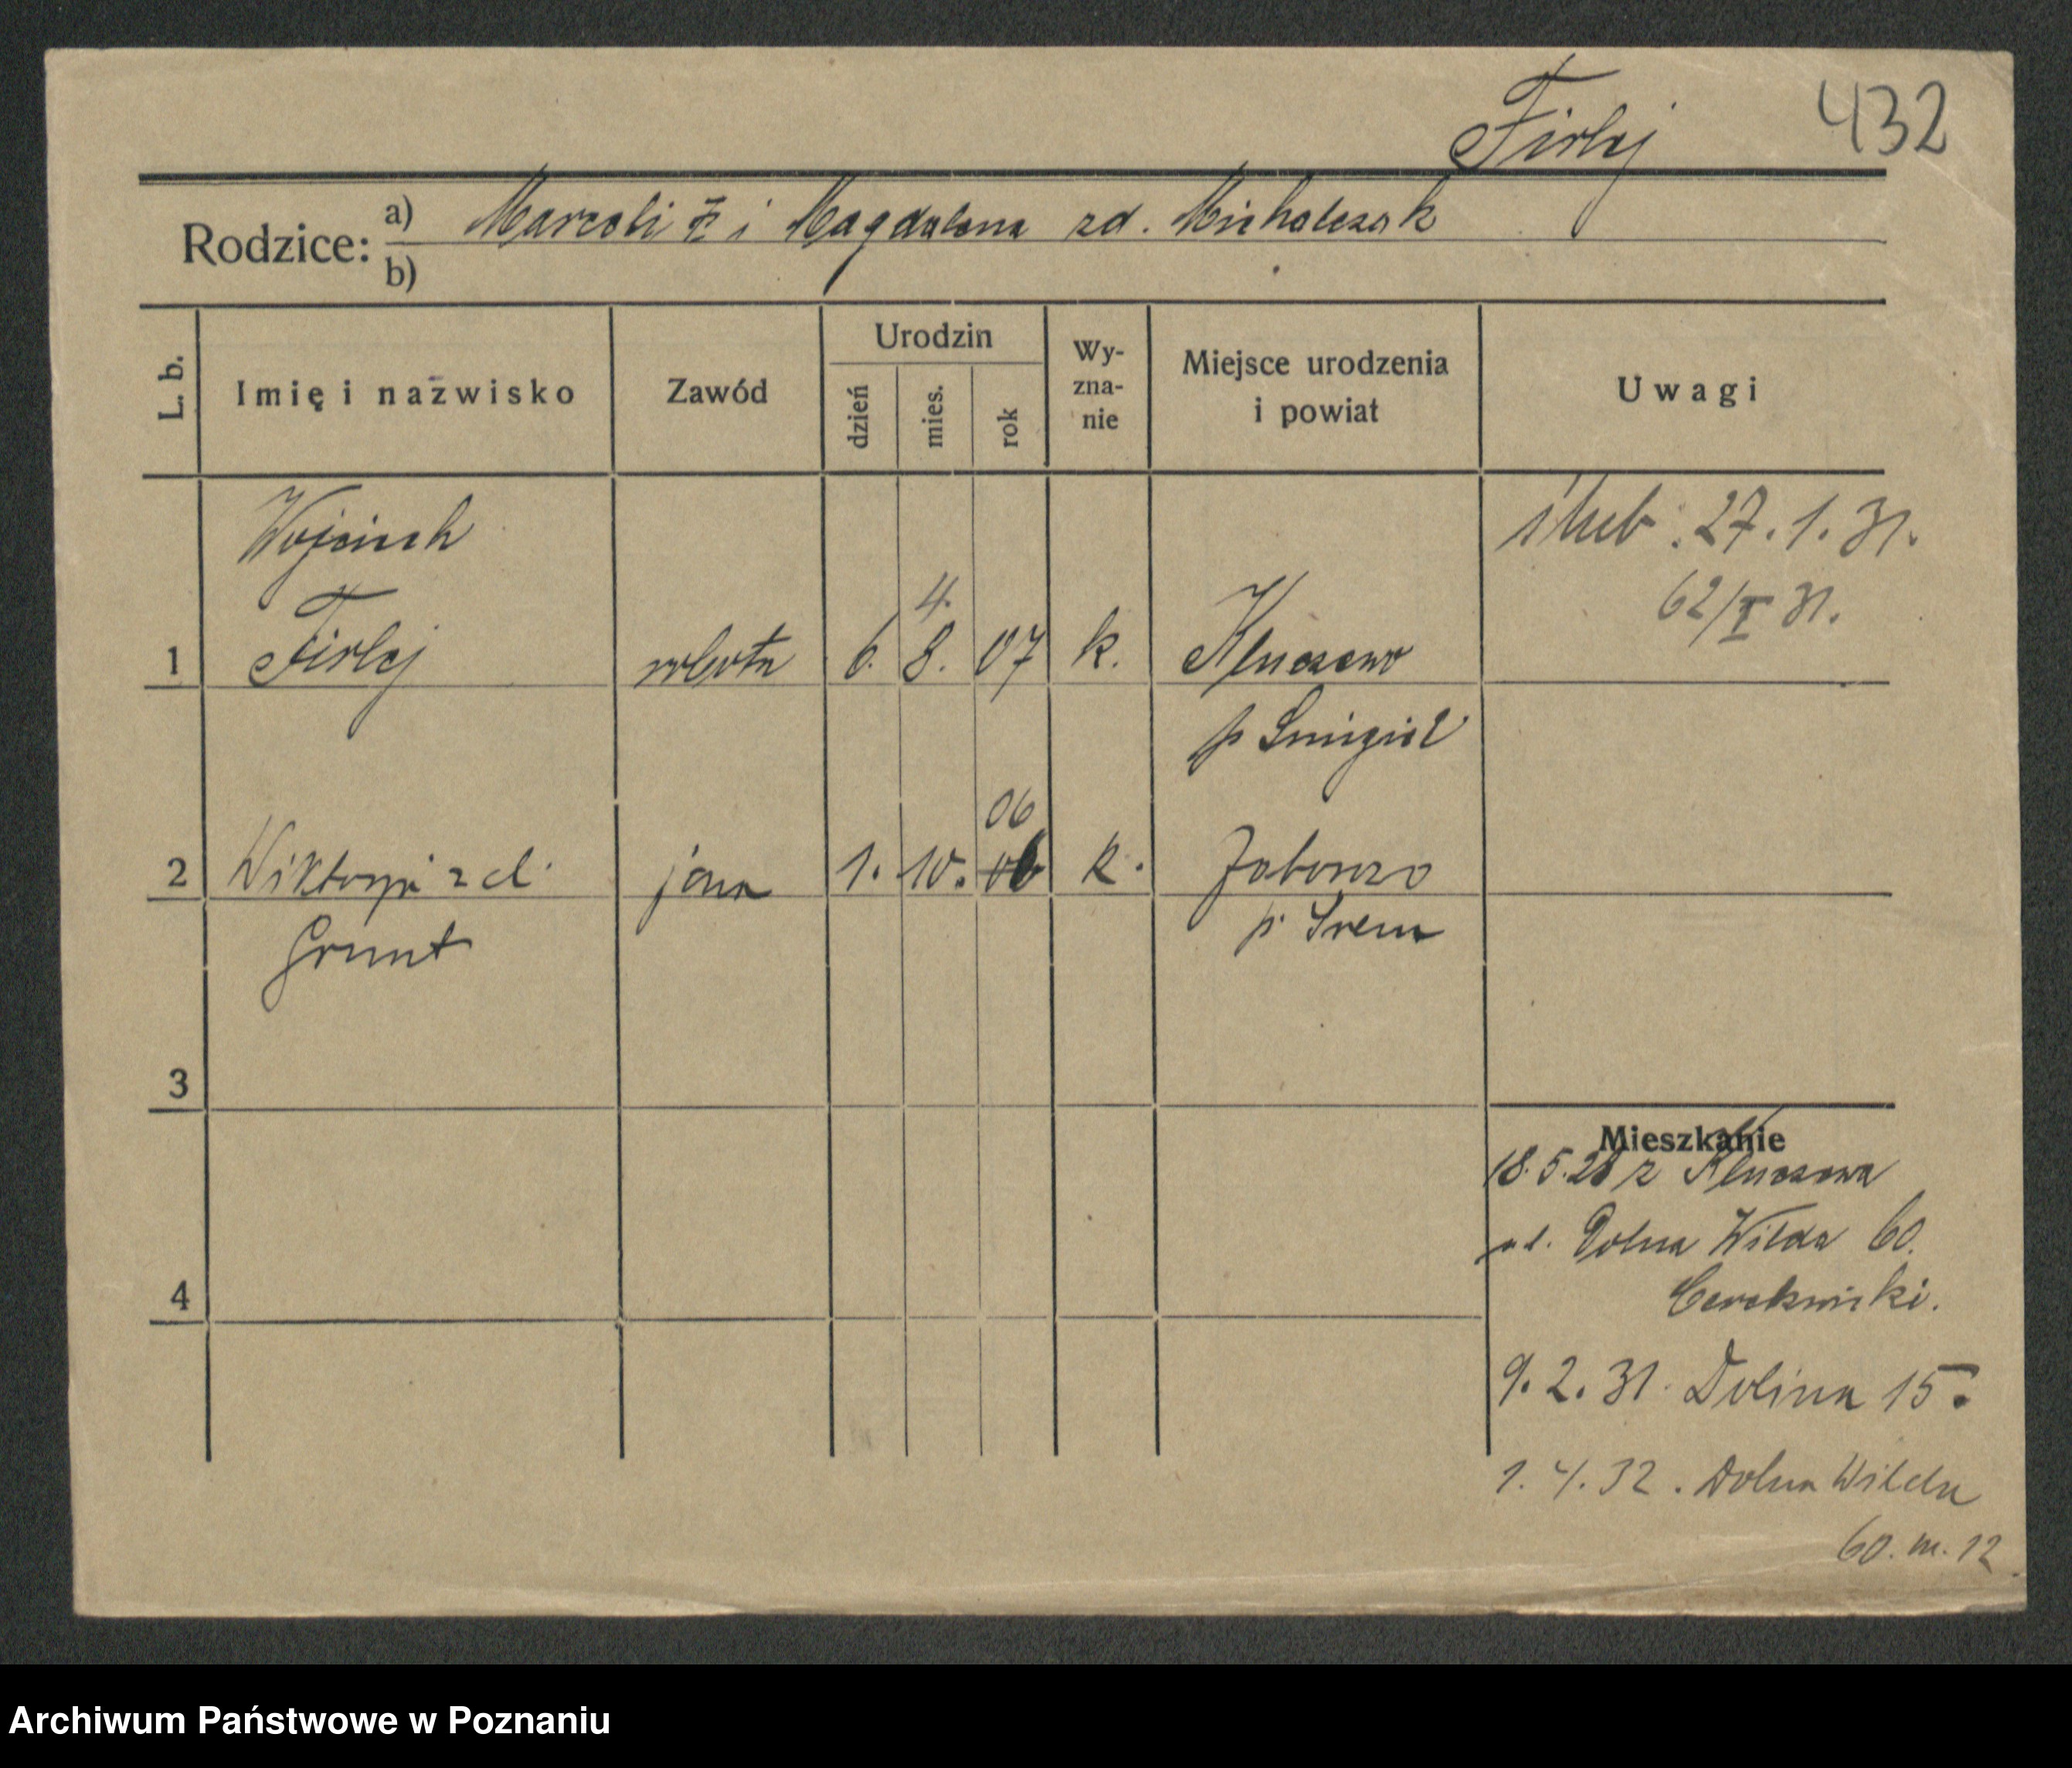 Firlej 432
Rodzice: a) Marceli i Magdalena zd. Michalczak
b)
L. b. Imię i nazwisko Zawód Urodzin dzień mies. rok Wy- zna- nie Miejsce urodzenia i powiat Uwagi
Wojciech ślub. 27.1.31.
4. 62/I 31.
1 Firlej robotn 6. 8. 07 k. Kluczewo
p Smigiel
06
2 Wiktorja zd. żona 1. 10. 06 k. Zaborowo
Grunt p. Srem
3
Mieszkanie
18.5.28 z Kluczewa
ul. Dolna Wilda 60.
4 Cerekwicki.
9.2.31. Dolina 15.
1.4.32. Dolna Wilda
60. m. 12
Archiwum Państwowe w Poznaniu